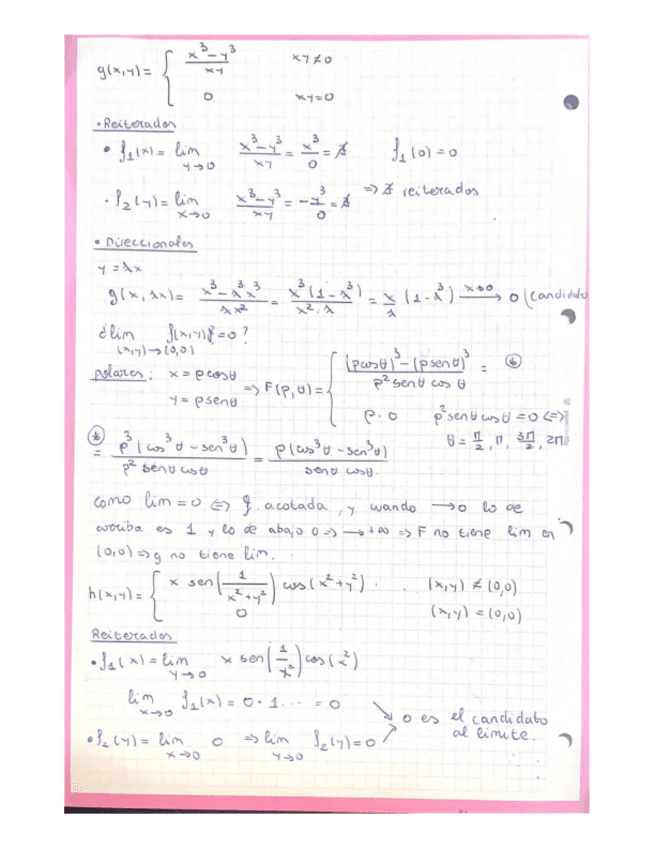 g(x,y) = { (x³-y³)/(xy)   xy≠0
0   xy=0
• Reiterados
• f₁(x) = lim_{y→0} (x³-y³)/(xy) = x³/0 = ∄   f₁(0)=0
• f₂(y) = lim_{x→0} (x³-y³)/(xy) = -y³/0 = ∄   ⇒ ∄ reiterados
• Direccionales
y = λx
g(x, λx) = (x³-λ³x³)/(λx²) = x³(1-λ³)/(x²·λ) = x/λ (1-λ³) →^{x→0} 0 (candidato
¿lim_{(x,y)→(0,0)} f(x,y) = 0?
polares: x = ρcosθ
y = ρsenθ
⇒ F(ρ,θ) = { ((ρcosθ)³-(ρsenθ)³)/(ρ²senθ cosθ) =
ρ·0   ρ²senθcosθ = 0 ⇔
θ = π/2, π, 3π/2, 2π
= ρ³(cos³θ - sen³θ)/(ρ²senθcosθ) = ρ(cos³θ - sen³θ)/(senθ cosθ).
como lim = 0 ⇔ f. acotada, y cuando → 0 lo de
arriba es 1 y lo de abajo 0 ⇒ → +∞ ⇒ F no tiene lim en
(0,0) ⇒ g no tiene lim.
h(x,y) = { x sen(1/(x²+y²)) cos(x²+y²).   (x,y) ≠ (0,0)
0   (x,y) = (0,0)
Reiterados
• f₁(x) = lim_{y→0} x sen(1/x²) cos(x²)
lim_{x→0} f₁(x) = 0·1... = 0
0 es el candidato
al límite.
• f₂(y) = lim_{x→0} 0 ⇒ lim_{y→0} f₂(y) = 0